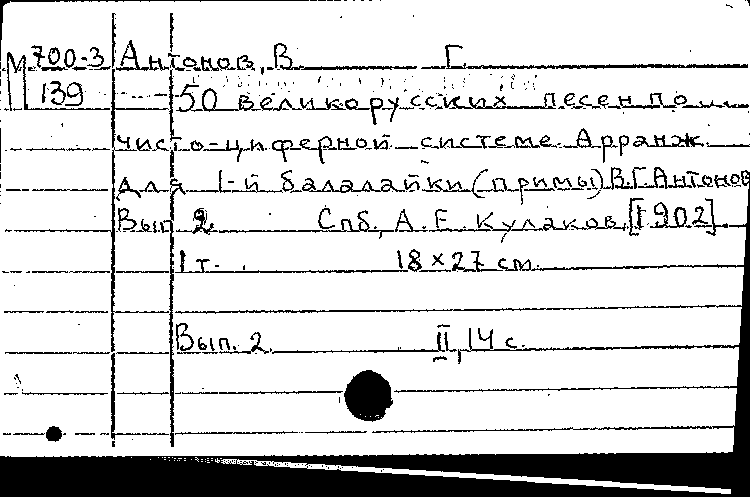 М 700-3 Антонов, В. Г.
139 50 великорусских песен по ...
чисто-циферной системе. Арранж.
для 1-й балалайки (примы) В.Г. Антонов
Вып. 2. Спб., А. Е. Кулаков, [1902].
1 т. 18 × 27 см.
Вып. 2. II, 14 с.